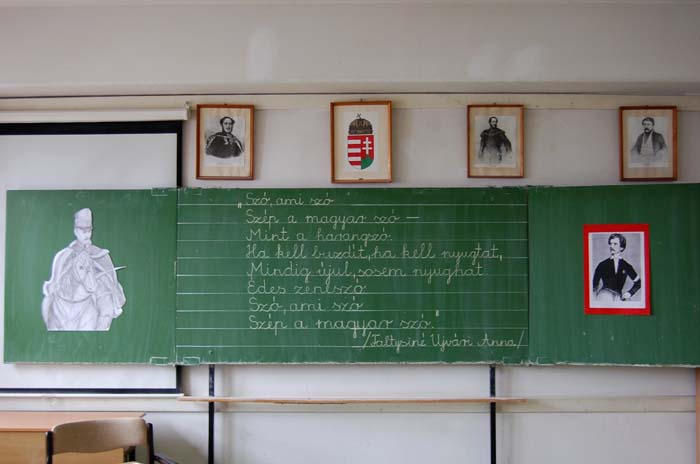 „Szó, ami szó
Szép a magyar szó –
Mint a harangszó.
Ha kell buzdít, ha kell nyugtat,
Mindig újul, sosem nyughat
Édes zeneszó.
Szó, ami szó
Szép a magyar szó."
/Faltysiné Ujvári Anna/